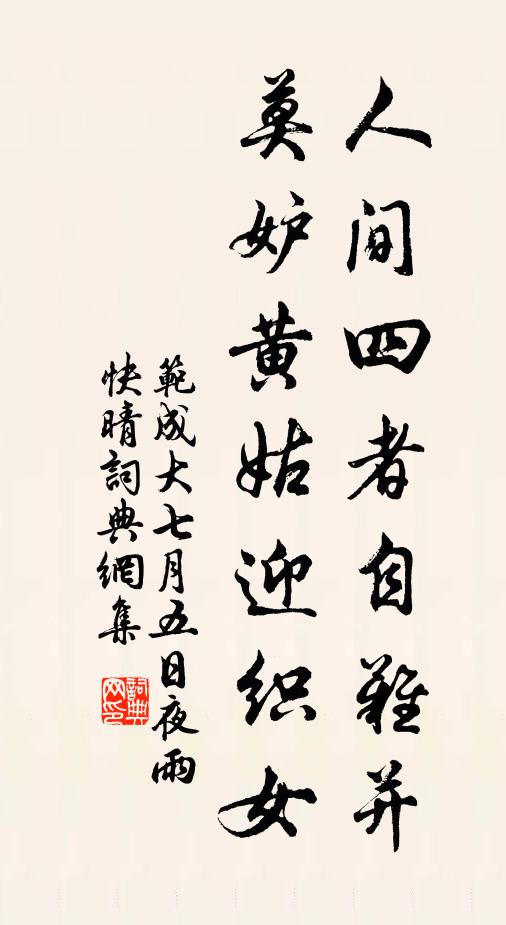 人间四者自難并
莫妒黄姑迎织女
範成大七月五日夜雨
快晴詞典網集
詞典网印